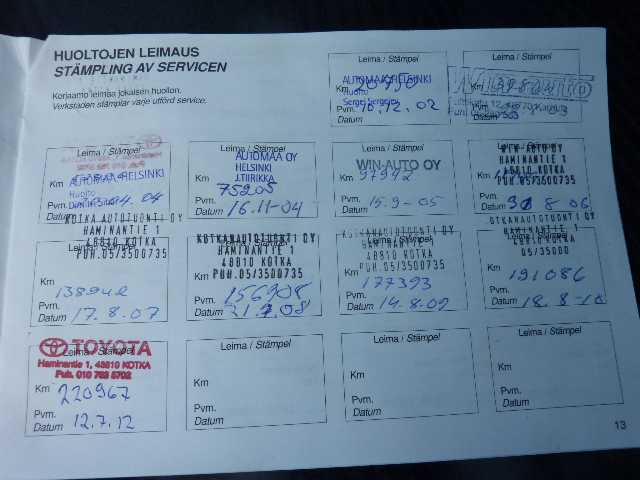 HUOLTOJEN LEIMAUS
STÄMPLING AV SERVICEN
Korjaamo leimaa jokaisen huollon.
Verkstaden stämplar varje utförd service.
Leima / Stämpel
AUTOMAA HELSINKI
Huolto
Sergei
Km
Pvm. 10.12.02
Datum
Leima / Stämpel
Km
Pvm. 8-03
Datum
Leima / Stämpel
AUTOMAA HELSINKI
Huolto
Km
Pvm. 04.04
Datum
Leima / Stämpel
AUTOMAA OY
HELSINKI
J.TIIRIKKA
Km 75205
Pvm. 16.11-04
Datum
Leima / Stämpel
WIN-AUTO OY
Km 97942
Pvm. 15.9-05
Datum
Leima / Stämpel
WIN-AUTO OY
HAMINANTIE 1
48810 KOTKA
PUH.05/3500735
Km
Pvm. 8.06
Datum
KOTKA AUTOTUONTI OY
HAMINANTIE 1
48810 KOTKA
PUH.05/3500735
Leima / Stämpel
Km 138942
Pvm. 17.8.07
Datum
KOTKANAUTOTUONTI OY
HAMINANTIE 1
48810 KOTKA
PUH.05/3500735
Km 156908
Pvm. 21.7.08
Datum
KOTKANAUTOTUONTI OY
HAMINANTIE 1
48810 KOTKA
PUH.05/3500735
Km 177393
Pvm. 14.8.09
Datum
OTKANAUTOTUONTI OY
HAMINANTIE 1
48810 KOTKA
05/35000
Km 191086
Pvm. 18.8-10
Datum
Leima / Stämpel
TOYOTA
Haminantie 1, 48810 KOTKA
Puh. 010 763 5702
Km 220967
Pvm. 12.7.12
Datum
Leima / Stämpel
Km
Pvm.
Datum
Leima / Stämpel
Km
Pvm.
Datum
Leima / Stämpel
Km
Pvm.
Datum
13